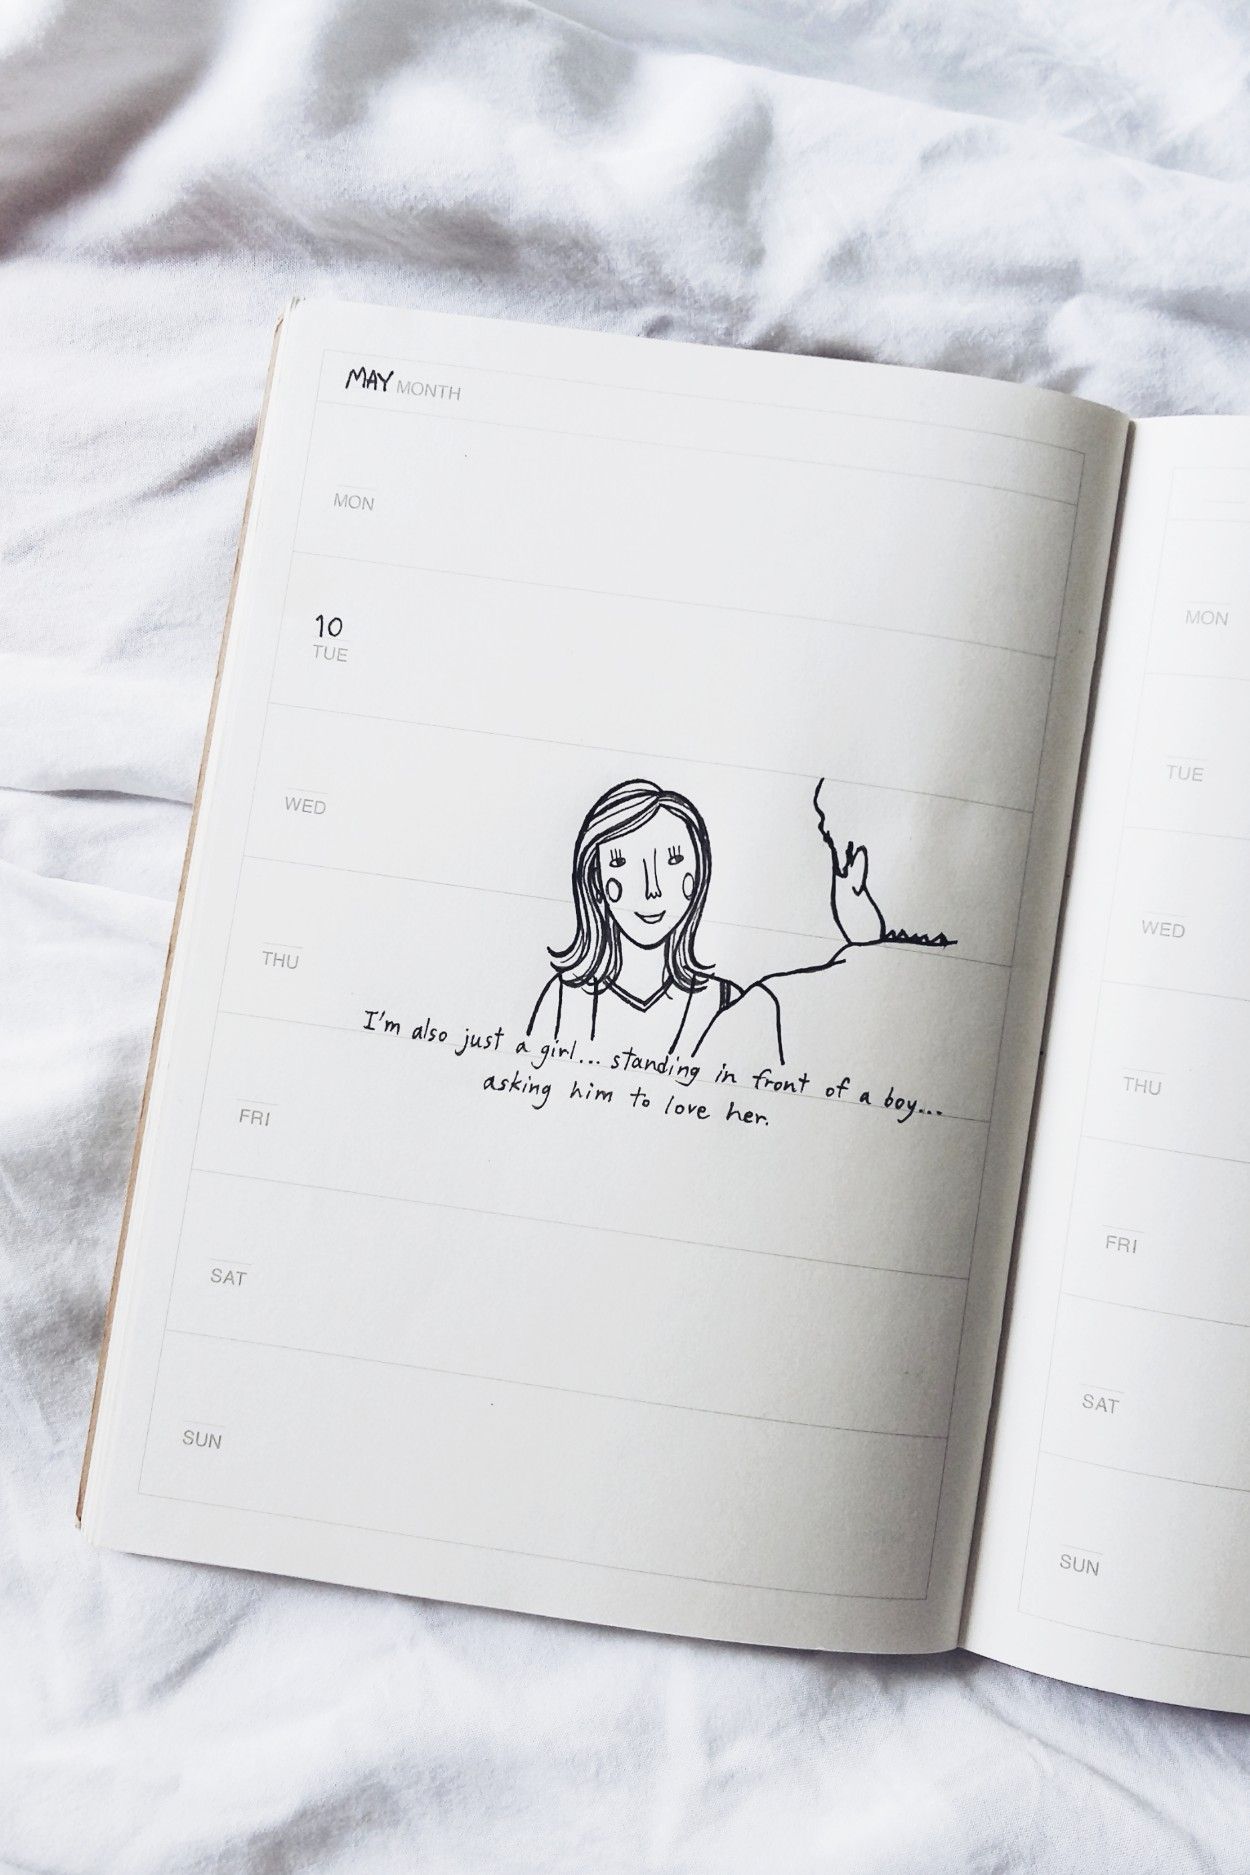 MAY MONTH
MON
10
TUE
WED
THU
I'm also just a girl... standing in front of a boy...
asking him to love her.
FRI
SAT
SUN
MON
TUE
WED
THU
FRI
SAT
SUN